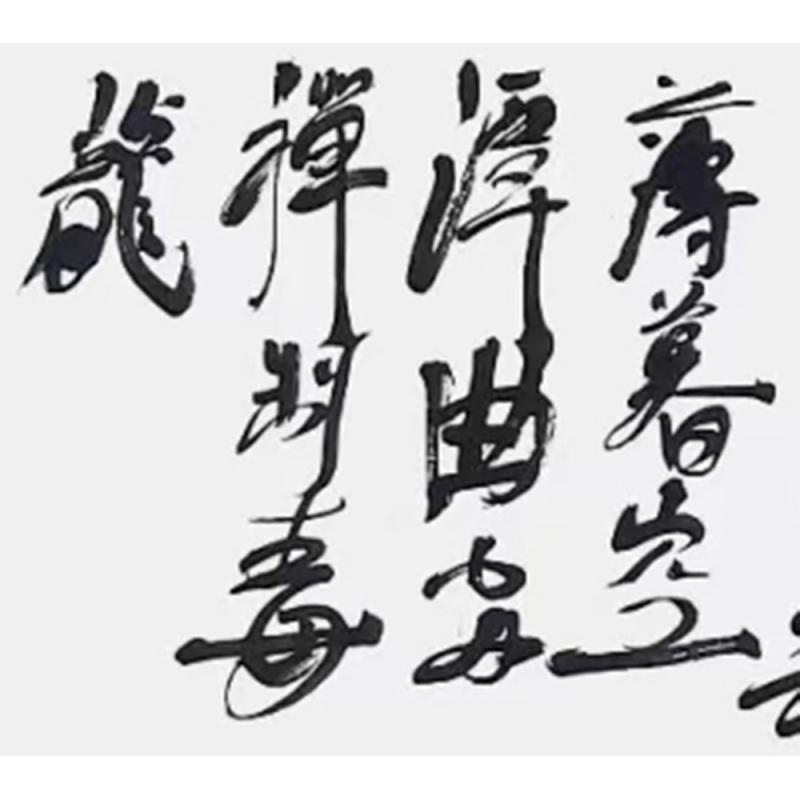 薄暮空
潭曲安
禪制毒
龍